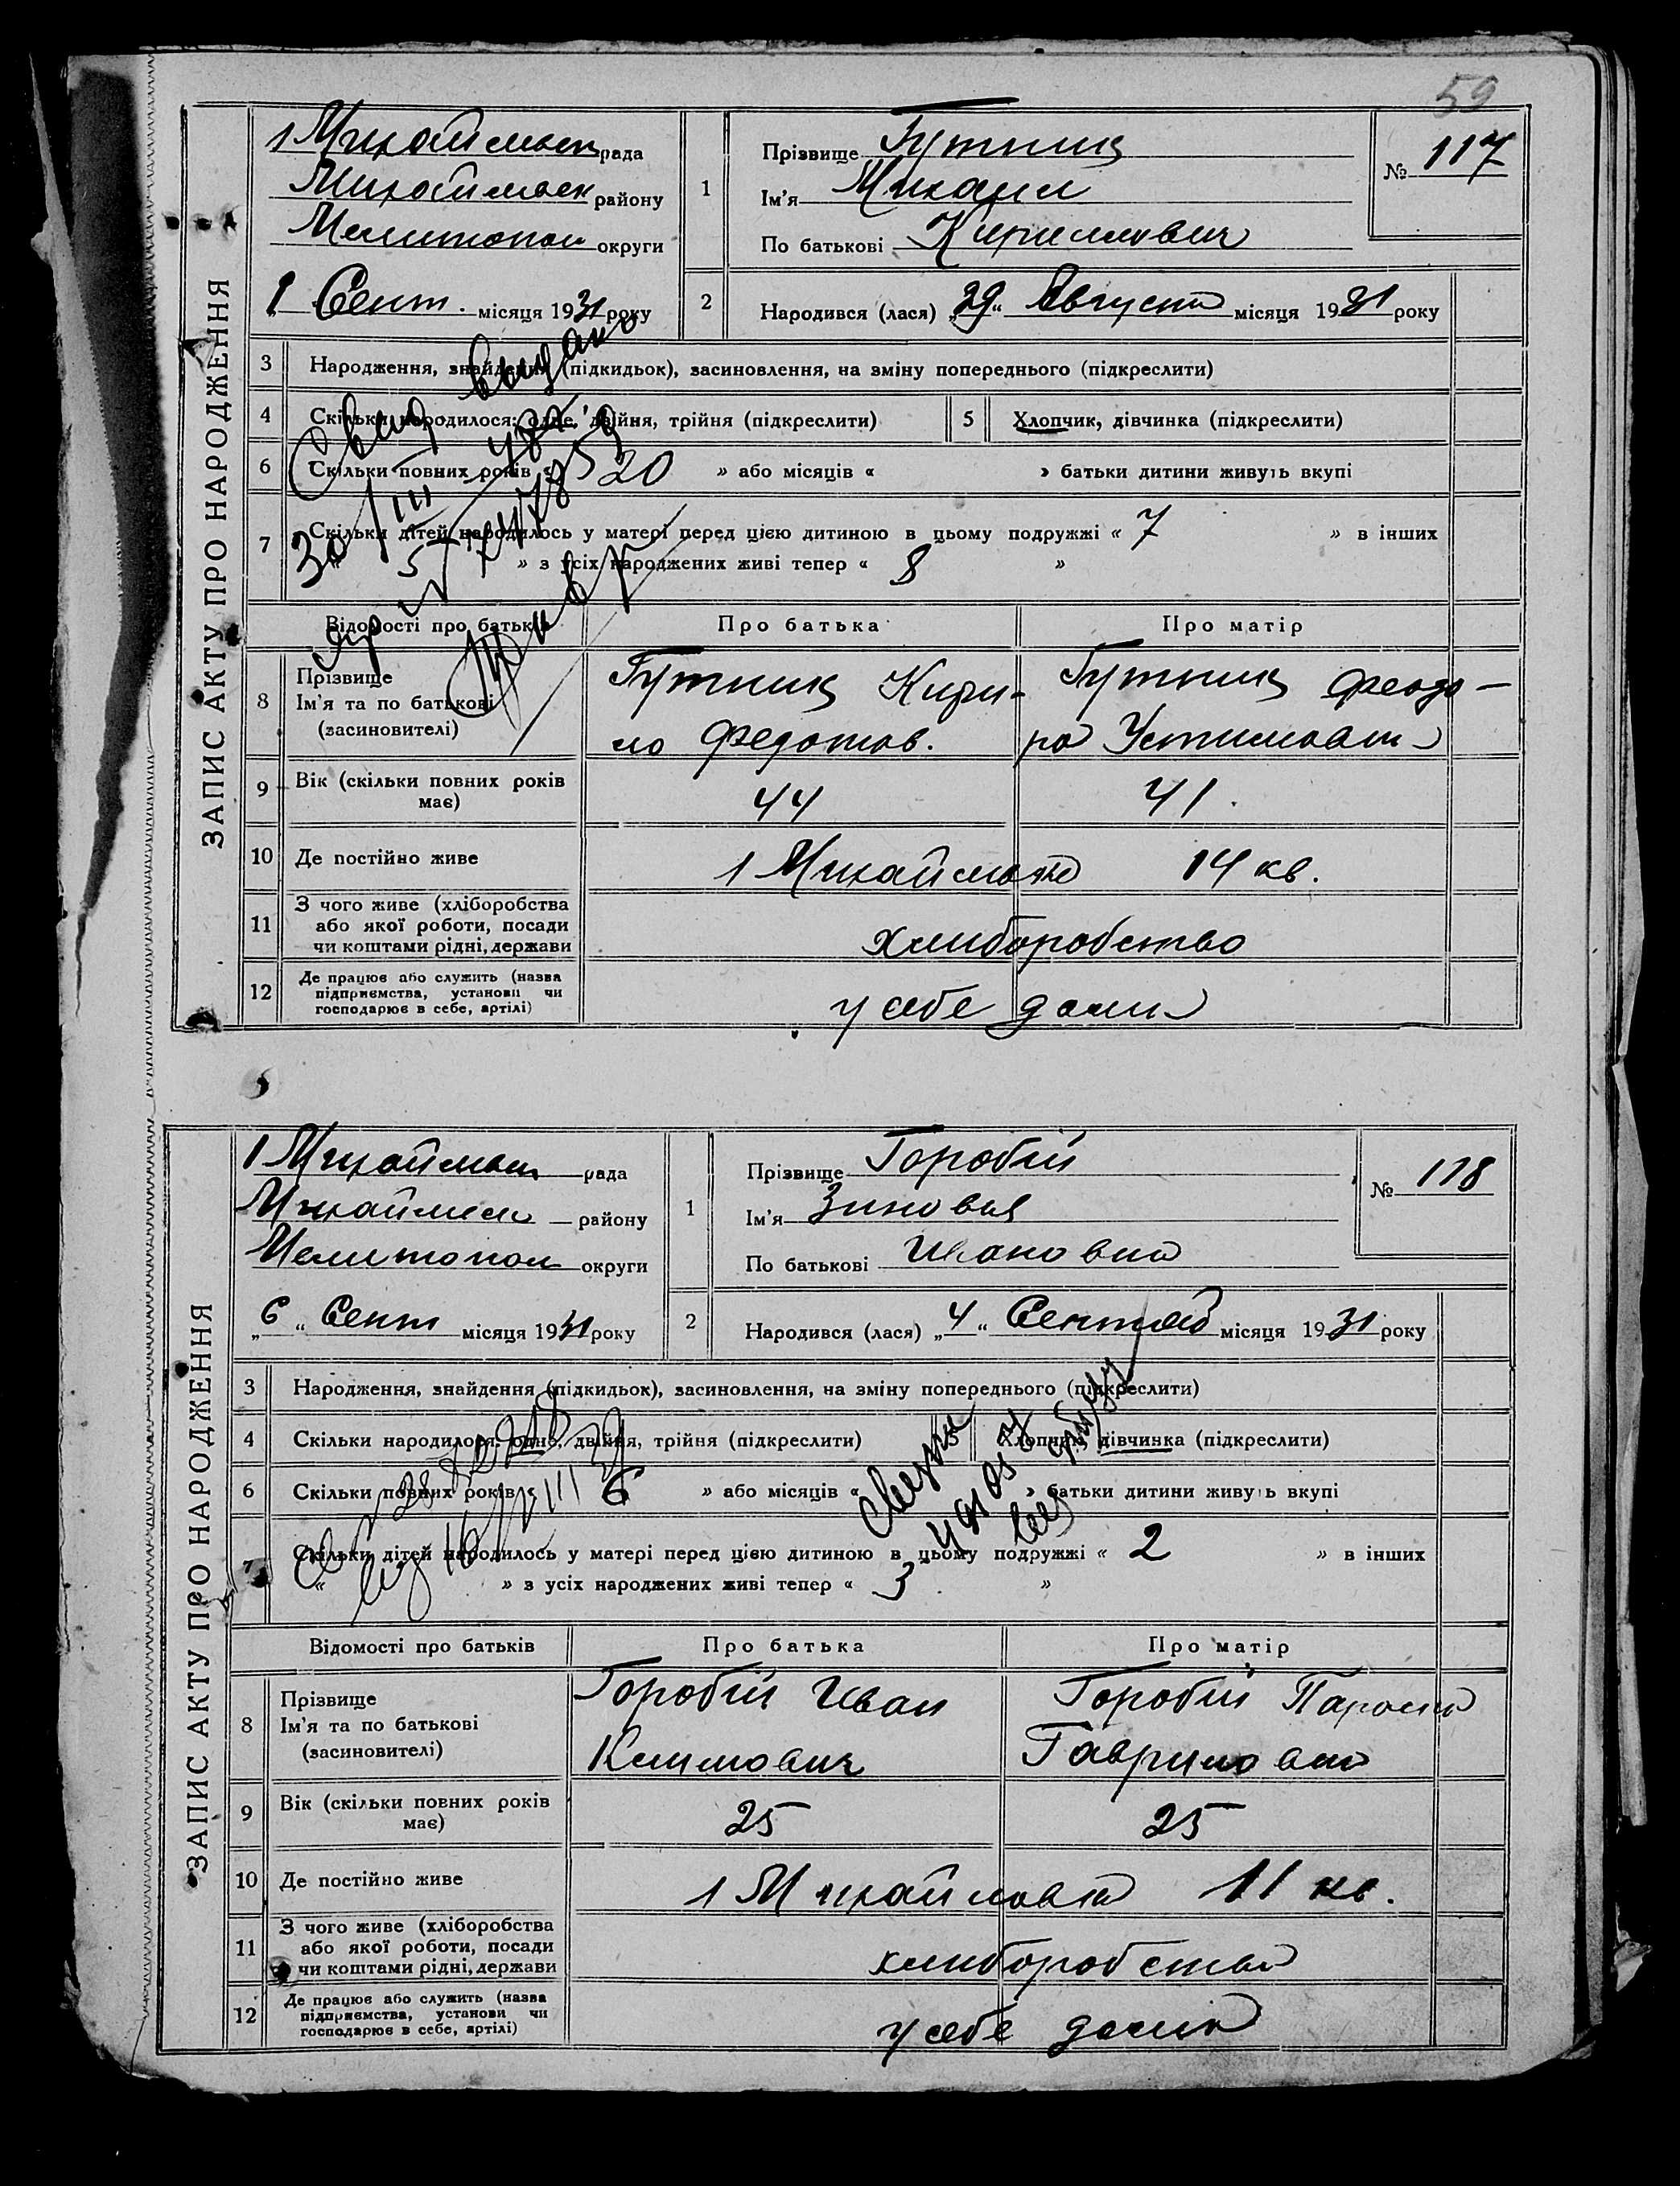 59
ЗАПИС АКТУ ПРО НАРОДЖЕННЯ
1 Михайловск рада
Михайловск району
Мелитопол округи
1 Прізвище Гутник
Ім'я Михаил
По батькові Кириллович
№ 117
1 Сент. місяця 1931 року
2 Народився (лася) „29“ Августа місяця 1931 року
3 Народження, знайдення (підкидьок), засиновлення, на зміну попереднього (підкреслити)
4 Скільки народилося: одне, двійня, трійня (підкреслити)
5 Хлопчик, дівчинка (підкреслити)
6 Скільки повних років « 20 » або місяців « » батьки дитини живуть вкупі
7 Скільки дітей народилось у матері перед цією дитиною в цьому подружжі « 7 » в інших
« » з усіх народжених живі тепер « 8 »
Свид выдано
30/III
Відомості про батьків
Про батька
Про матір
8 Прізвище
Ім'я та по батькові
(засиновителі)
Гутник Кири-
ло Федотов.
Гутник Феодо-
ра Устимовна
9 Вік (скільки повних років
має)
44
41.
10 Де постійно живе
1 Михайловка 14 кв.
11 З чого живе (хліборобства
або якої роботи, посади
чи коштами рідні, держави
хлиборобство
12 Де працює або служить (назва
підприємства, установи чи
господарює в себе, артілі)
у себе дома
ЗАПИС АКТУ ПРО НАРОДЖЕННЯ
1 Михайловск рада
Михайловск району
Мелитопол округи
1 Прізвище Горобій
Ім'я Зиновья
По батькові Ивановна
№ 118
„6“ Сент місяця 1931 року
2 Народився (лася) „4“ Сентяб місяця 1931 року
3 Народження, знайдення (підкидьок), засиновлення, на зміну попереднього (підкреслити)
4 Скільки народилося: одне, двійня, трійня (підкреслити)
5 Хлопчик, дівчинка (підкреслити)
6 Скільки повних років « 6 » або місяців « » батьки дитини живуть вкупі
7 Скільки дітей народилось у матері перед цією дитиною в цьому подружжі « 2 » в інших
« » з усіх народжених живі тепер « 3 »
Відомості про батьків
Про батька
Про матір
8 Прізвище
Ім'я та по батькові
(засиновителі)
Горобій Иван
Климович
Горобій Параска
Гавриловна
9 Вік (скільки повних років
має)
25
25
10 Де постійно живе
1 Михайловка 11 кв.
11 З чого живе (хліборобства
або якої роботи, посади
чи коштами рідні, держави
хлиборобство
12 Де працює або служить (назва
підприємства, установи чи
господарює в себе, артілі)
у себе дома